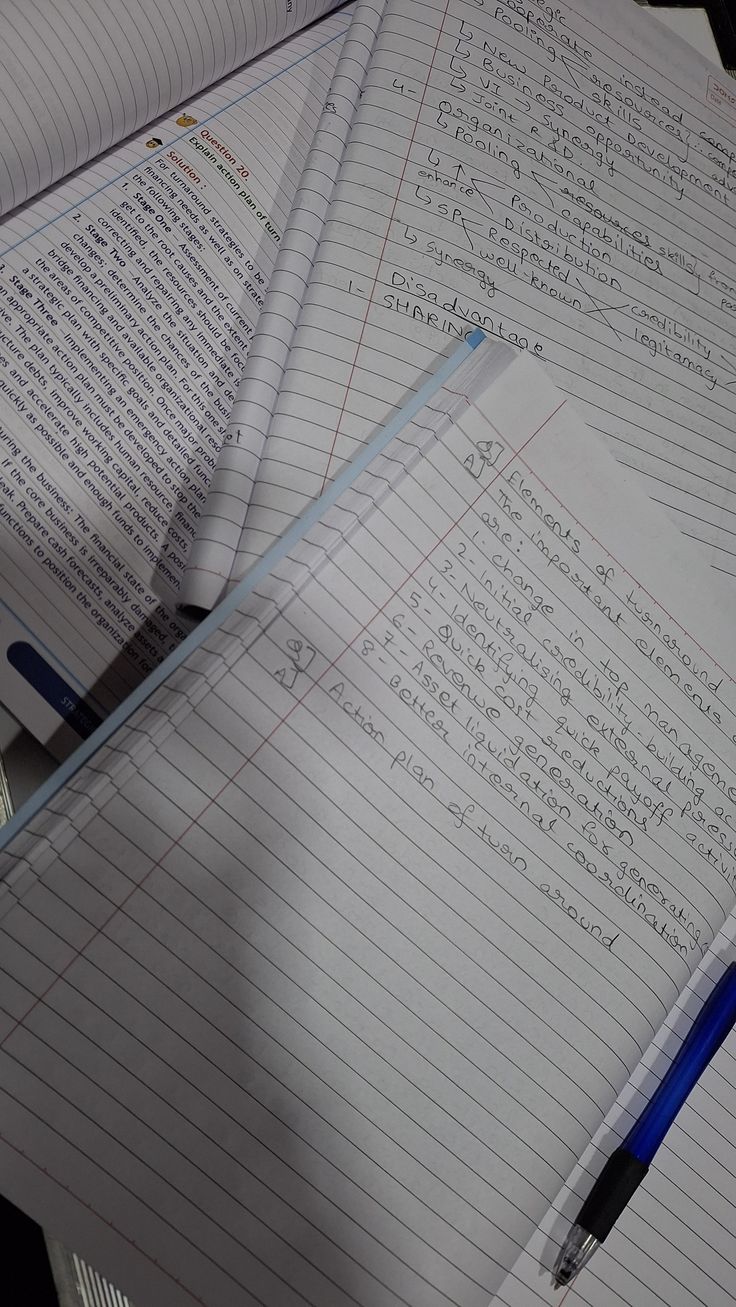 Question 20.
Explain action plan of turn
Solution :
For turnaround strategies to be
financing needs as well as on strate
the following stages:
1. Stage One – Assessment of current
get to the root causes and the extent
identified, the resources should be foc
correcting and repairing any immediate is
2. Stage Two – Analyze the situation and de
changes; determine the chances of the busi
develop a preliminary action plan. For this one sh
bridge financing and available organizational reso
the areas of competitive position. Once major prob
a strategic plan with specific goals and detailed func
Stage Three – Implementing an emergency action plan
an appropriate action plan must be developed to stop the
The plan typically includes human resource, finan
debts, improve working capital, reduce costs,
and accelerate high potential products. A posi
quickly as possible and enough funds to implemen
the business: The financial state of the orga
If the core business is irreparably damaged, t
Prepare cash forecasts, analyze assets a
functions to position the organization for
STRATEG
cooperate instead comp
Pooling resources
skills
↳ New Product Development
↳ Business opportunity
↳ VI → Synergy
↳ Joint R & D
4- Organizational
↳ Pooling skills
capabilities
↳ ↑ Production
enhance Distribution
↳ SP Respected credibility
well-known legitamacy
↳ synergy
Disadvantage
1- SHARING
Q] Elements of turnaround
A] The important elements
are:
1- change in top manageme
2- Initial credibility-building ac
3- Neutralising external pressu
4- Identifying quick payoff activit
5- Quick cost reductions
6- Revenue generation
7- Asset liquidation for generating
8- Better internal coordination
Q] Action plan of turn around
A]